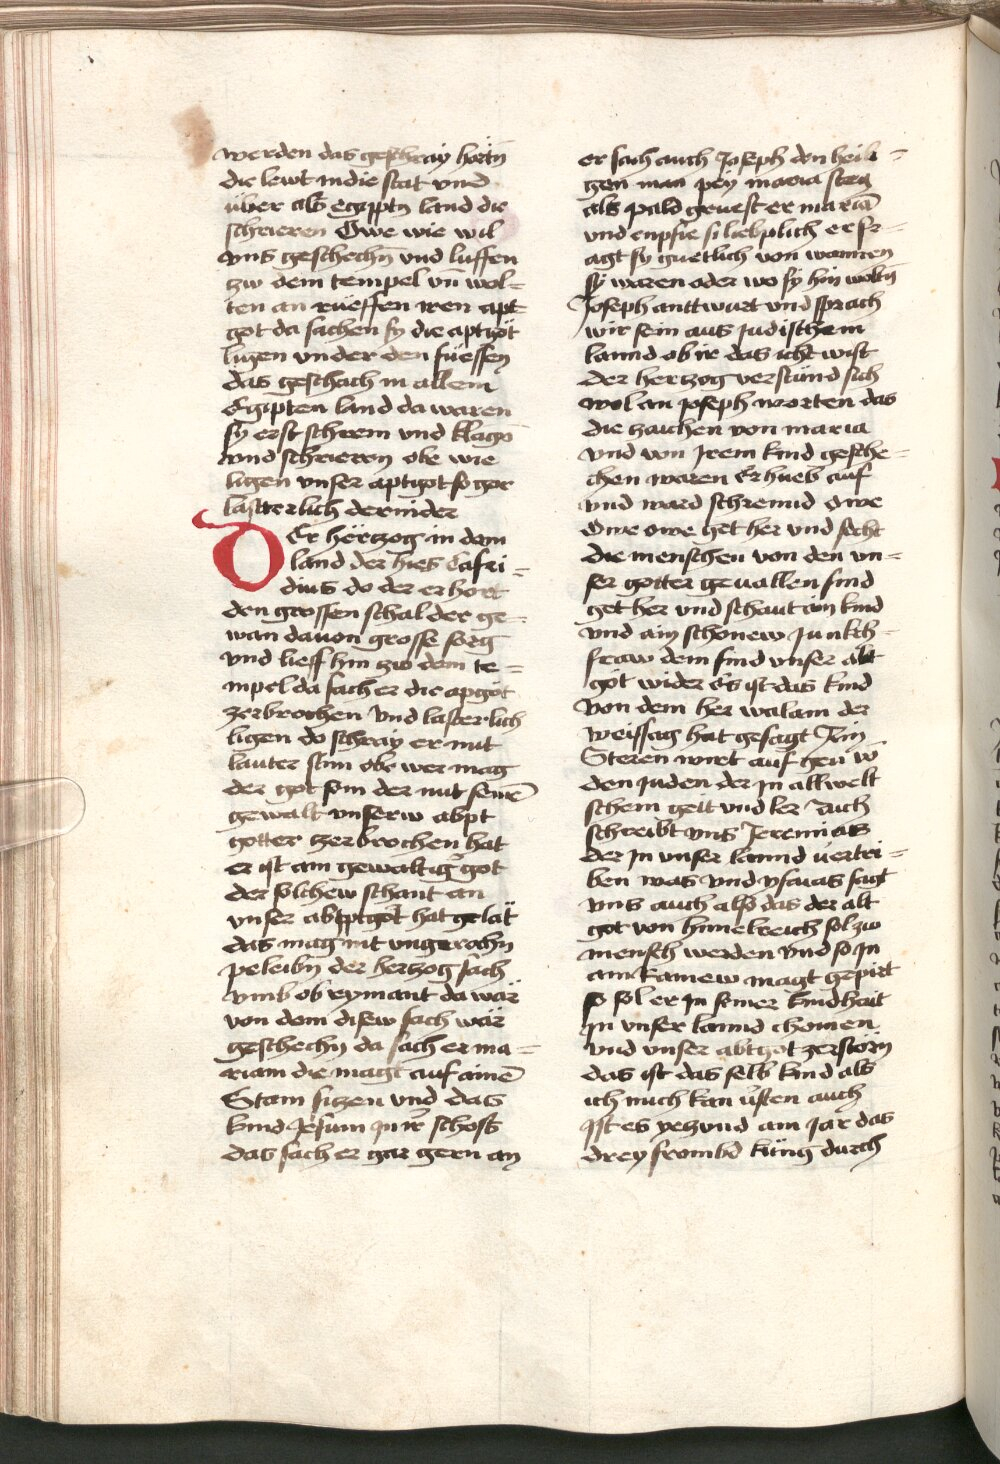 werden das geschray hortn̄
die lewt in die stat vnd
über als egyppтn land die
schrieren Owe wie wil
vns geschechn̄ vnd luffen
zw dem tempel vn̄ wol=
ten an rüeffen iren apt
got da sachen sy die aptgöt
ligen vnder den füessen
das geschach in allem
Egipten land da waren
sy erst schreien vnd klagñ
vnd schrieren obe wie
ligen vnser aptgot so gor
lasterlich dernider
DEr hërczog in dem
land der hies Eafri=
dius do der erhort
den grossen schal der ge=
wan dauon grosse sorg
vnd lieff hin zw dem te=
mpel da sach er die apgöt
zerbrochen vnd lasterlich
ligen do schray er mit
lauter stim obe wer mag
der got sein der mit seinē
gewalt vnserw abpt
gotter zerbrochen hat
er ist ain gewaltig᷑ got
der solchew schant an
vnser abtptgöt hat gelät
das mag nit vngerochn
peleibn̄ der herczog sach
vmb ob eymant da wär
von dem disew sach wär
geschechn̄ da sach er ma=
riam die magt auf ainē
Stam siczen vnd das
kind Jesum in ir schoss
das sach er gar gern an
er sach auch Joseph den heili=
gen man pey maria sten
als pald gruest er mariā
vnd enpfie si lieblplich er fr=
agt sy guetlich von wannen
sy waren oder wo sy hin woltn̄
Joseph anttwurt vnd sprach
wir sein aus Judisthem
lannd ob ir das icht wist
Der herczog verstünd sich
wol an Joseph worten das
die zaichen von maria
vnd von Jrem kind gesche=
chen waren Er hueb auf
vnd ward schreiund owe
owe owe get her vnd secht
die menschen von den vn=
ser gotter geuallen sind
get her vnd schaut ain kind
vnd ain schonew Junkch=
fraw dem sind vnser abt
göt wider Es ist das kind
von dem her walam der
weissag hat gesagt Ain
Steren wirt auf gen vō
den Juden der in all welt
schein geit vnd ler Auch
schreibt vns Jeremias
der in vnser lannd vertri=
ben was vnd ysaias sagt
vns auch also das der alt
got von himelreich sol zw
mensch werden vnd so in
ain rainew magt gepirt
so sol er in seiner kindhait
in vnser lannd chomen
vnd vnser abtgot zerstörn
das ist das selb kind als
ich mich kan v̈sten auch
ist es yeczund ain Jar das
drey frombd küng durch